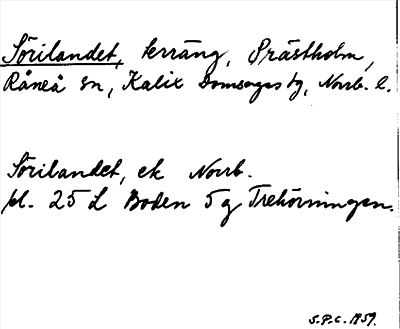 Sörilandet, terräng, Prästholm,
Råneå sn, Kalix Domsagas tg, Norrb. l.
Sörilandet, ek Norrb.
pl. 25 L Boden 5 g Trehörningen.
S.P.C. 1959.